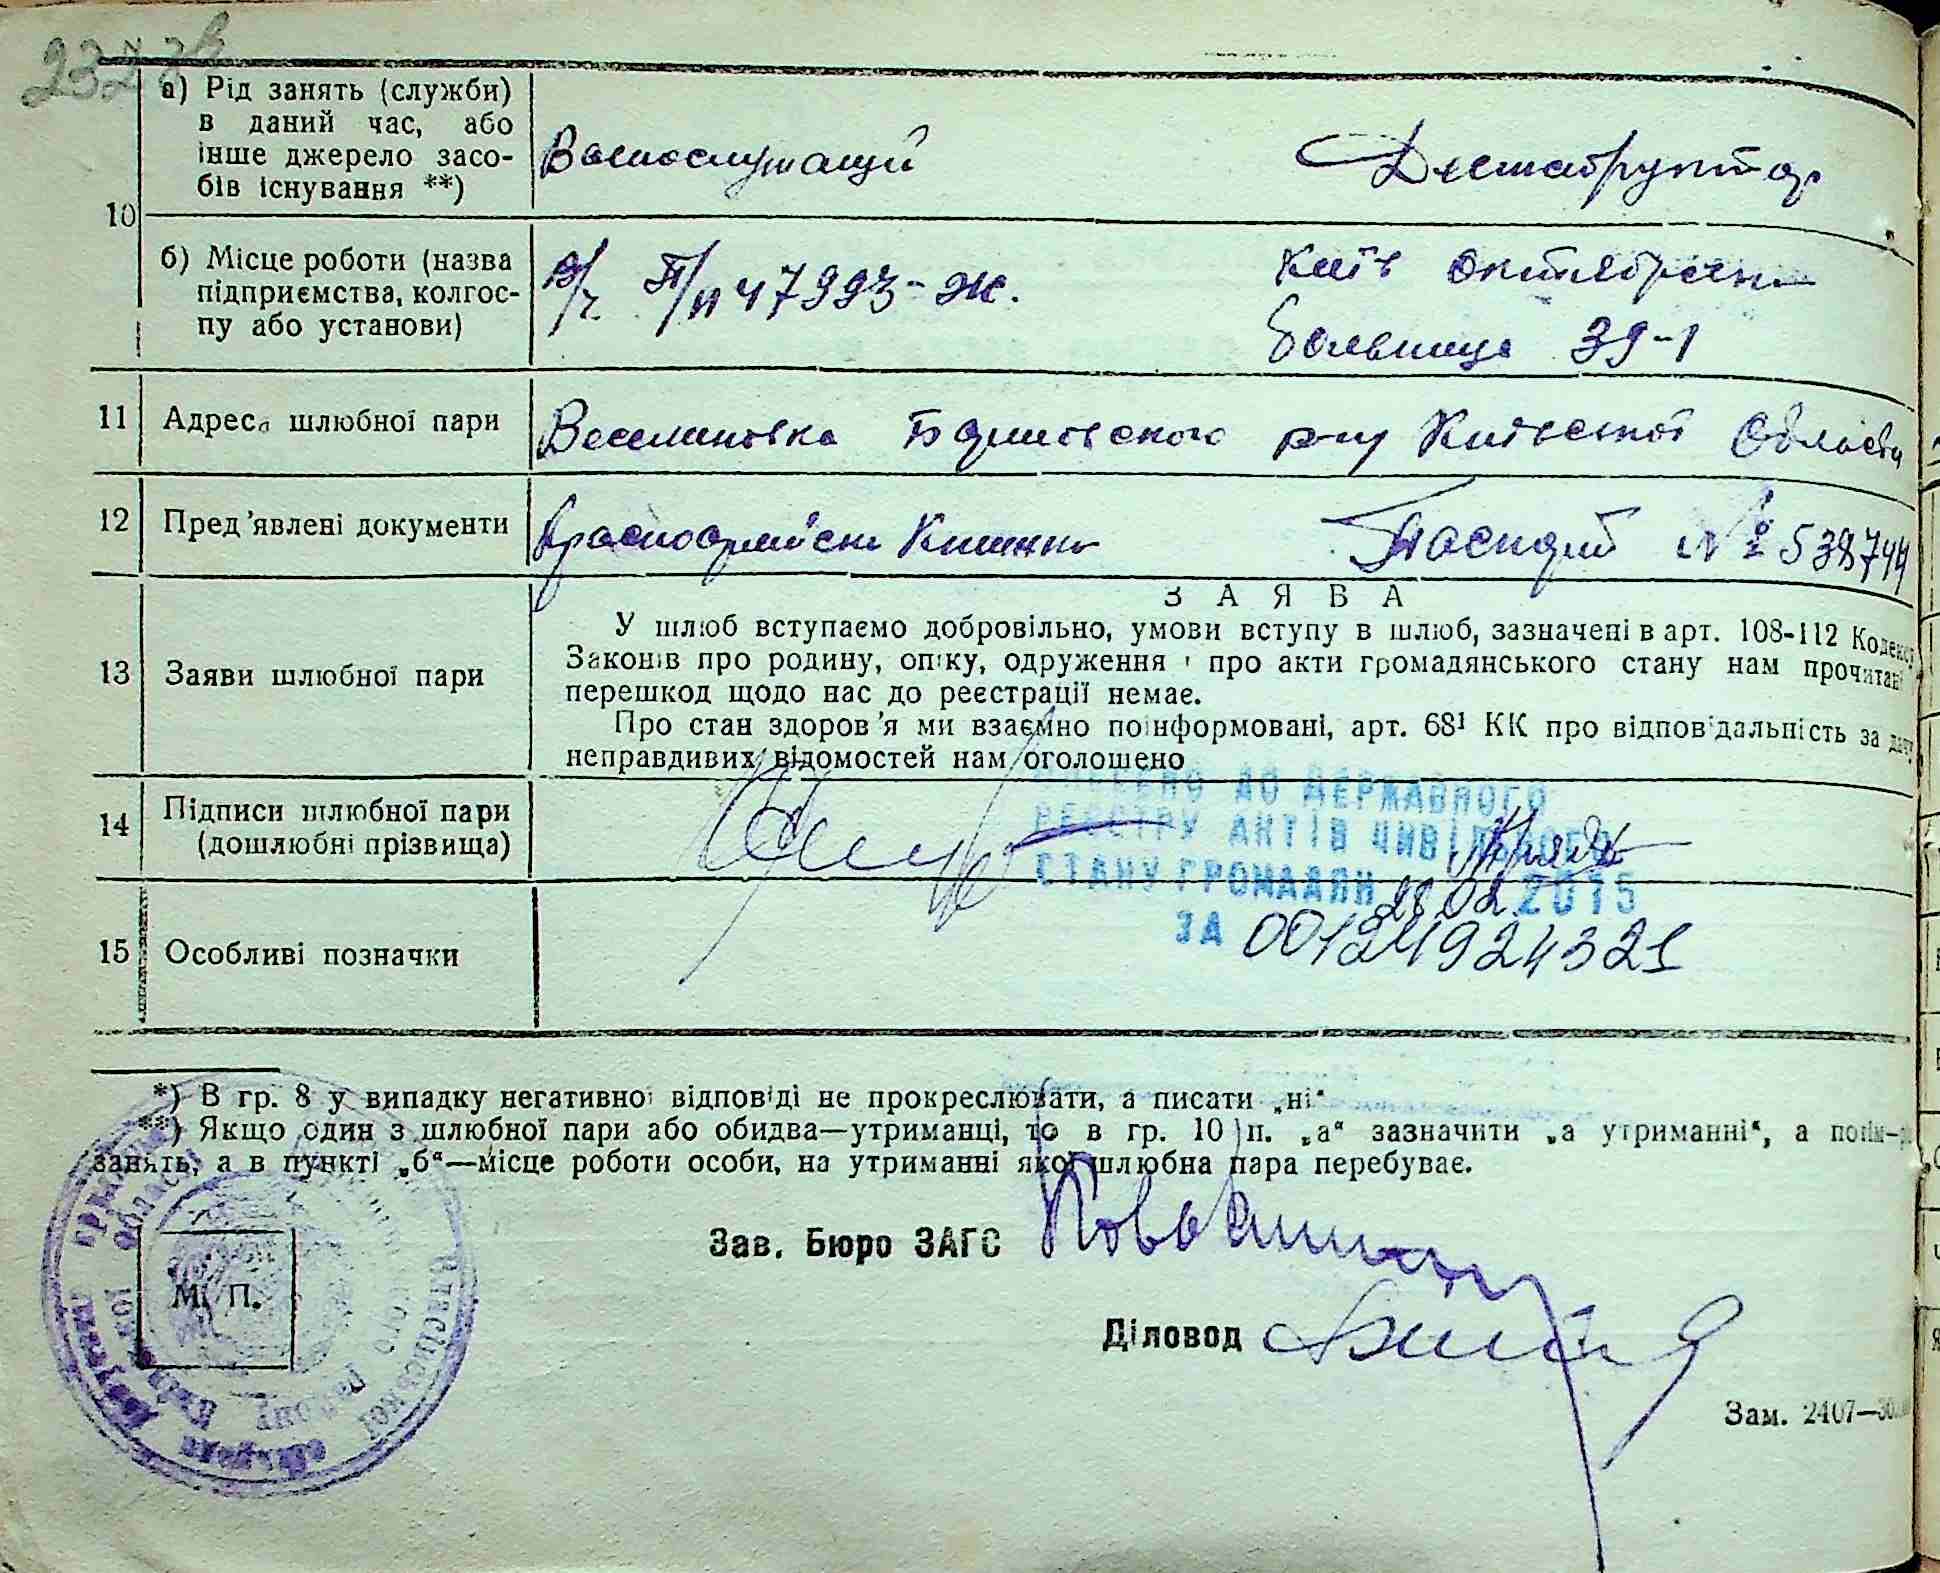 а) Рід занять (служби)
в даний час, або
інше джерело засо-
бів існування **)
Военослужащий
10
б) Місце роботи (назва
підприємства, колгос-
пу або установи)
в/ч п/п 47993-Ж.
Київ Октябрська
больница 39-1
11 Адреса шлюбної пари
Веселиновка Баришевского р-ну Київської Області
12 Пред'явлені документи
Красноармійська Книжка Паспорт № 538744
З А Я В А
13 Заяви шлюбної пари
У шлюб вступаємо добровільно, умови вступу в шлюб, зазначені в арт. 108-112 Кодексу
Законів про родину, опіку, одруження і про акти громадянського стану нам прочитані
перешкод щодо нас до реєстрації немає.
Про стан здоров'я ми взаємно поінформовані, арт. 68¹ КК про відповідальність за дачу
неправдивих відомостей нам оголошено
14 Підписи шлюбної пари
(дошлюбні прізвища)
ВНЕСЕНО ДО ДЕРЖАВНОГО
РЕЄСТРУ АКТІВ ЦИВІЛЬНОГО
СТАНУ ГРОМАДЯН 28.02.2015
ЗА 00124924321
15 Особливі позначки
*) В гр. 8 у випадку негативної відповіді не прокреслювати, а писати „ні“
**) Якщо один з шлюбної пари або обидва—утриманці, то в гр. 10 п. „а“ зазначити „а утриманні“, а потім—рід
занять, а в пункті „б“—місце роботи особи, на утриманні якої шлюбна пара перебуває.
Зав. Бюро ЗАГС
М. П.
Діловод
Зам. 2407—30